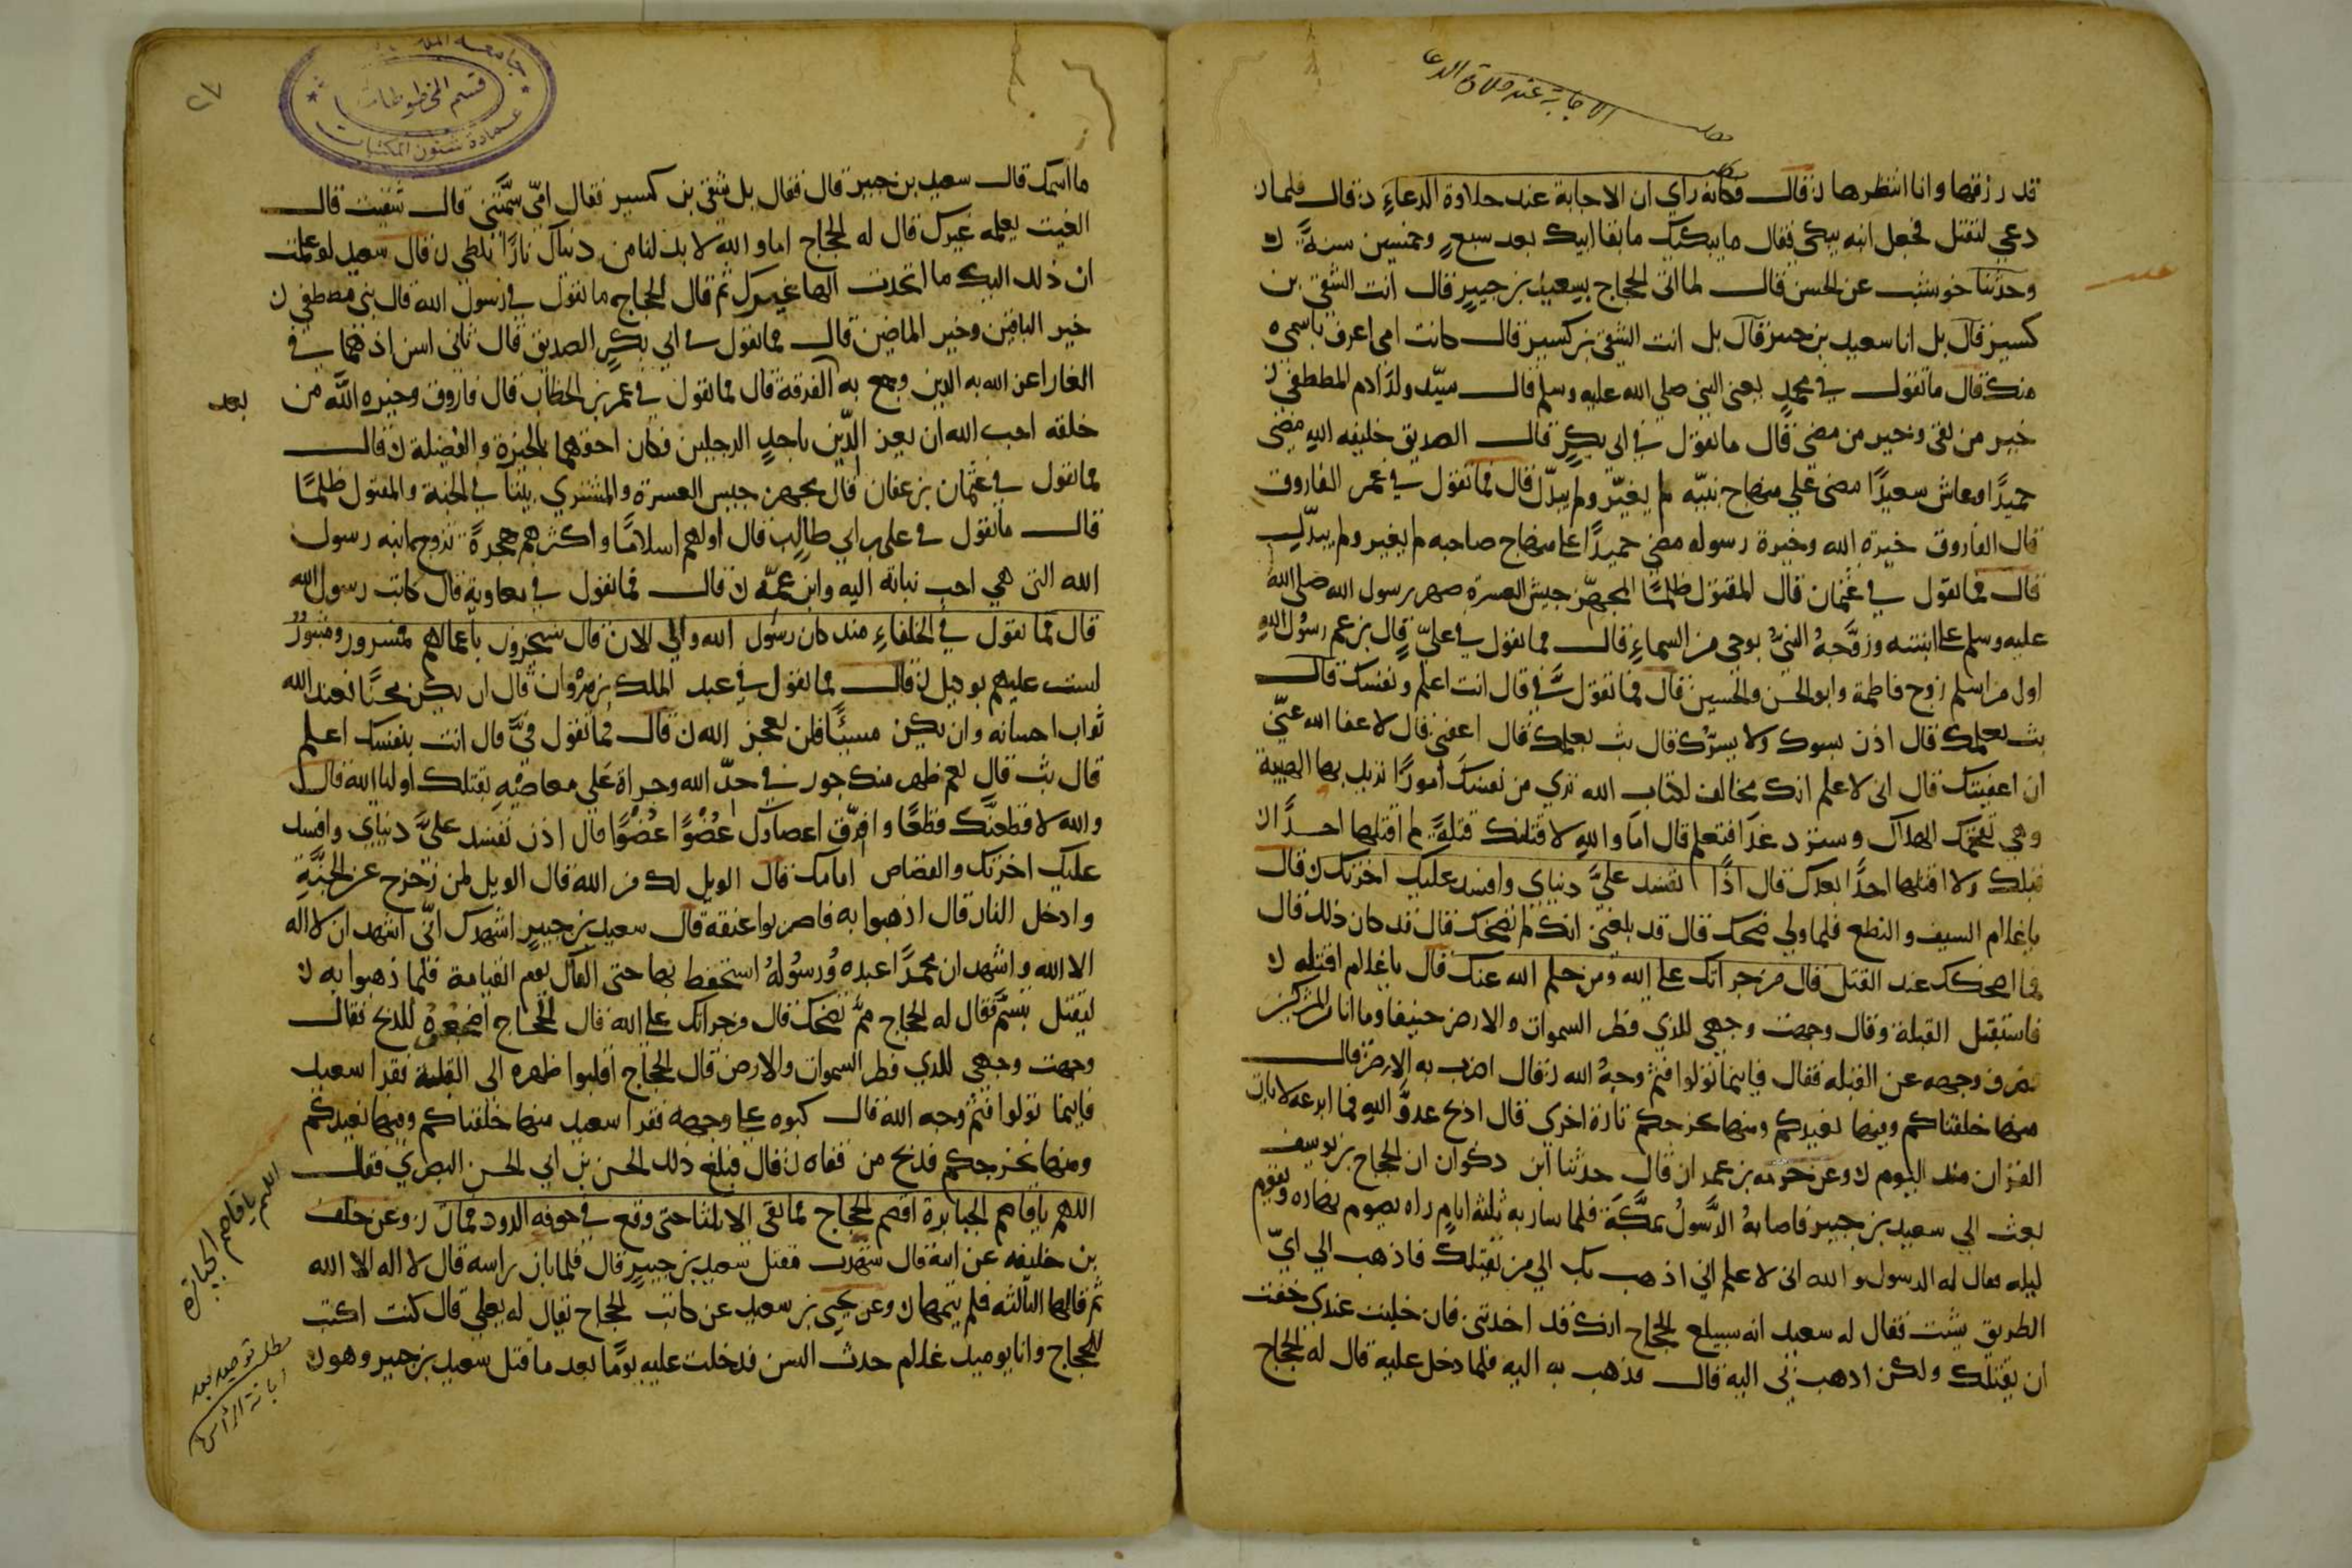 مطلب
الاجابة عند حلاوة الدعا
قد رزقها وانا انتظرها ن قال فكانه راي ان الاجابة عند حلاوة الدعاءِ ن قال فلما ان
دعي لتقتل فجعل ابنه يبكي فقال ما يبكيك ما بقا ابيك بعد سبعٍ وخمسين سنةً ن
وحدثنا خوشب عن الحسن قال لما اتى الحجاج بسعيد بن جبيرٍ قال انت الشقي بن
كسير قال بل انا سعيد بن جبير قال بل انت الشقي بن كسير قال كانت امي اعرف باسمي
منك قال ما تقول في محمدٍ يعني النبي صلي الله عليه وسلم قال سيّد ولد ادم المصطفي ن
خير من بقي وخير من مضى قال ما تقول في ابي بكرٍ قال الصديق خليفه اللهِ مضى
حميدًا وعاش سعيدًا مضى علي منهاج نبيّه لم يغيّر ولم يبدّل قال فما تقول في عمر الفاروق
قال الفاروق خيرة الله وخيرة رسوله مضى حميدًا على منهاج صاحبه لم يغير ولم يبدّل
قال فما تقول في عثمان قال المقتول ظلمًا المجهّز جيش العسرة صهر رسول الله صلى الله
عليه وسلم على ابنتيه وزوّجهُ النبيُّ بوحي من السماءِ قال فما تقول في عليّ قال بن عم رسول اللهِ
اول من اسلم زوج فاطمة وابو الحسن والحسين قال فما تقول فيَّ قال انت اعلم ونفسك قال
بث بعلمك قال اذن يسوك ولا يسرّك قال بث بعلمك قال اعفني قال لا عفا الله عنّي
ان اعفيتك قال اني لاعلم انك مخالف لكتاب الله تري من نفسك امورًا تريد بها الهيبة
وهي تقحمك الهلاك وسترد غدًا فتعلم قال اما واللهِ لاقتلنك قتلةً لم اقتلها احدًا
قبلك ولا اقتلها احدًا بعدك قال اذًا تفسد عليَّ دنياي وافسد عليك اخرتك ن قال
يا غلام السيف والنطع فلما ولي ضحك قال قد بلغني انك لم تضحك قال قد كان ذلك قال
فما اضحكك عند القتل قال من جراتك علي الله ومن حلم الله عنك قال يا غلام اقتله ن
فاستقبل القبلة وقال وجهت وجهي للذي فطر السموات والارض حنيفا وما انا من المشركين
فصرف وجهه عن القبله فقال فاينما تولوا فثم وجهُ الله ن فقال اضرب به الارض قال
منها خلقناكم وفيها نعيدكم ومنها نخرجكم تارة اخري قال اذبح عدوَّ اللهِ فما انزعه لايات
القران منذ اليوم ن وعن بن عمران قال حدثنا ابن ذكوان ان الحجاج بن يوسف
بعث الي سعيد بن جبير فاصابهُ الرّسولُ بمكّةَ فلما سار به ثلثة ايامٍ راه يصوم نهاره ويقوم
ليله فقال له الرسول والله اني لاعلم اني اذهب بك الي من يقتلك فاذهب الي ايّ
الطريق شئت فقال له سعيد انه سيبلغ الحجاج انك قد اخذتني فان خليت عندي خفت
ان يقتلك ولكن اذهب بي اليه قال فذهب به اليه فلما دخل عليه قال له الحجاج
٢٧
قسم المخطوطات
عمادة شئون المكتبات
ما اسمك قال سعيد بن جبير قال فقال بل شقي بن كسير فقال امّي سَمَّتني قال شقيت قال
الغيب يعلمه غيرك قال له الحجاج اما والله لابدلنك من دنياك نارًا تلظي ن قال سعيد لو علمت
ان ذلك اليك ما اتخذت الها غيرك ثم قال الحجاج ما تقول في رسول الله قال نبي مصطفي ن
خير الباقين وخير الماضين قال فما تقول في ابي بكرٍ الصديق قال ثاني اثنين اذ هما في
الغار اعز الله به الدين وجمع به الفرقة قال فما تقول في عمر بن الخطاب قال فاروق وخيره اللّه من
خلقه احب الله ان يعز الدّين باحدِ الرجلين فكان احقهما بالخيرة والفضيلة ن قال
فما تقول في عثمان بن عفان قال مجهز جيش العسرة والمشتري بيتًا في الجنة والمقتول ظلمًا
قال ما تقول في علي بن ابي طالبٍ قال اولهم اسلامًا واكثرهم هجرةً تزوج ابنه رسول
الله التي هي احب بناته اليه وابن عمّه ن قال فما تقول في معاوية قال كاتب رسول الله
قال فما تقول في الخلفاءِ منذ كان رسول الله والي الان قال سيجزون باعمالهم فمسرور ومثبور
لست عليهم بوكيل ن قال فما تقول في عبد الملك بن مروان قال ان يكن محسنًا فعند الله
ثواب احسانه وان يكن مسيئًا فلن يعجز الله ن قال فما تقول فيَّ قال انت بنفسك اعلم
قال بث قال نعم ظهر منك جور في حدّ الله وجراة على معاصيهِ بقتلك اوليا الله قال
والله لاقطعنَّك قطعًا وافرّق اعضاءك عُضوًا عُضوًا قال اذن تفسد عليَّ دنياي وافسد
عليك اخرتك والقصاص امامك قال الويل لك من الله قال الويل لمن زحزح عن الجنّةِ
وادخل النار قال اذهبوا به فاضربوا عنقه قال سعيد بن جبيرٍ اشهدك انّي اشهد ان لا اله
الا الله واشهد ان محمدًا عبده ورسولهُ استحفظ بها حتى القاك يوم القيامة فلما ذهبوا به ن
ليقتل تبسّم فقال له الحجاج ممَّ تضحك قال من جراتك علي الله قال الحجاج اضجعوه للذبح فقال
وجهت وجهي للذي فطر السموات والارض قال الحجاج اقلبوا ظهره الى القبلة فقرا سعيد
فاينما تولوا فثم وجه الله قال كبوه على وجهه فقرا سعيد منها خلقناكم وفيها نعيدكم
ومنها نخرجكم فذبح من قفاه ن قال فبلغ ذلك الحسن بن ابي الحسن البصري فقال
اللهم يا قاصم الجبابرة اقصم الحجاج فما بقى الا ثلثا حتى وقع في جوفه الدود فمات ن وعن خلف
بن خليفه عن ابيه قال شهدت مقتل سعيد بن جبيرٍ قال فلما بان راسه قال لا اله الا الله
ثم قالها الثالثه فلم يتمها ن وعن يحيى بن سعيد عن كاتب الحجاج يقال له يعلي قال كنت اكتب
للحجاج وانا يوميذ غلام حدث السن فدخلت عليه يومًا بعد ما قتل سعيد بن جبير وهو ن
بعد
اللهم يا قاصم الجبابرة
مطلب توحيد بعد
ابانة الراس